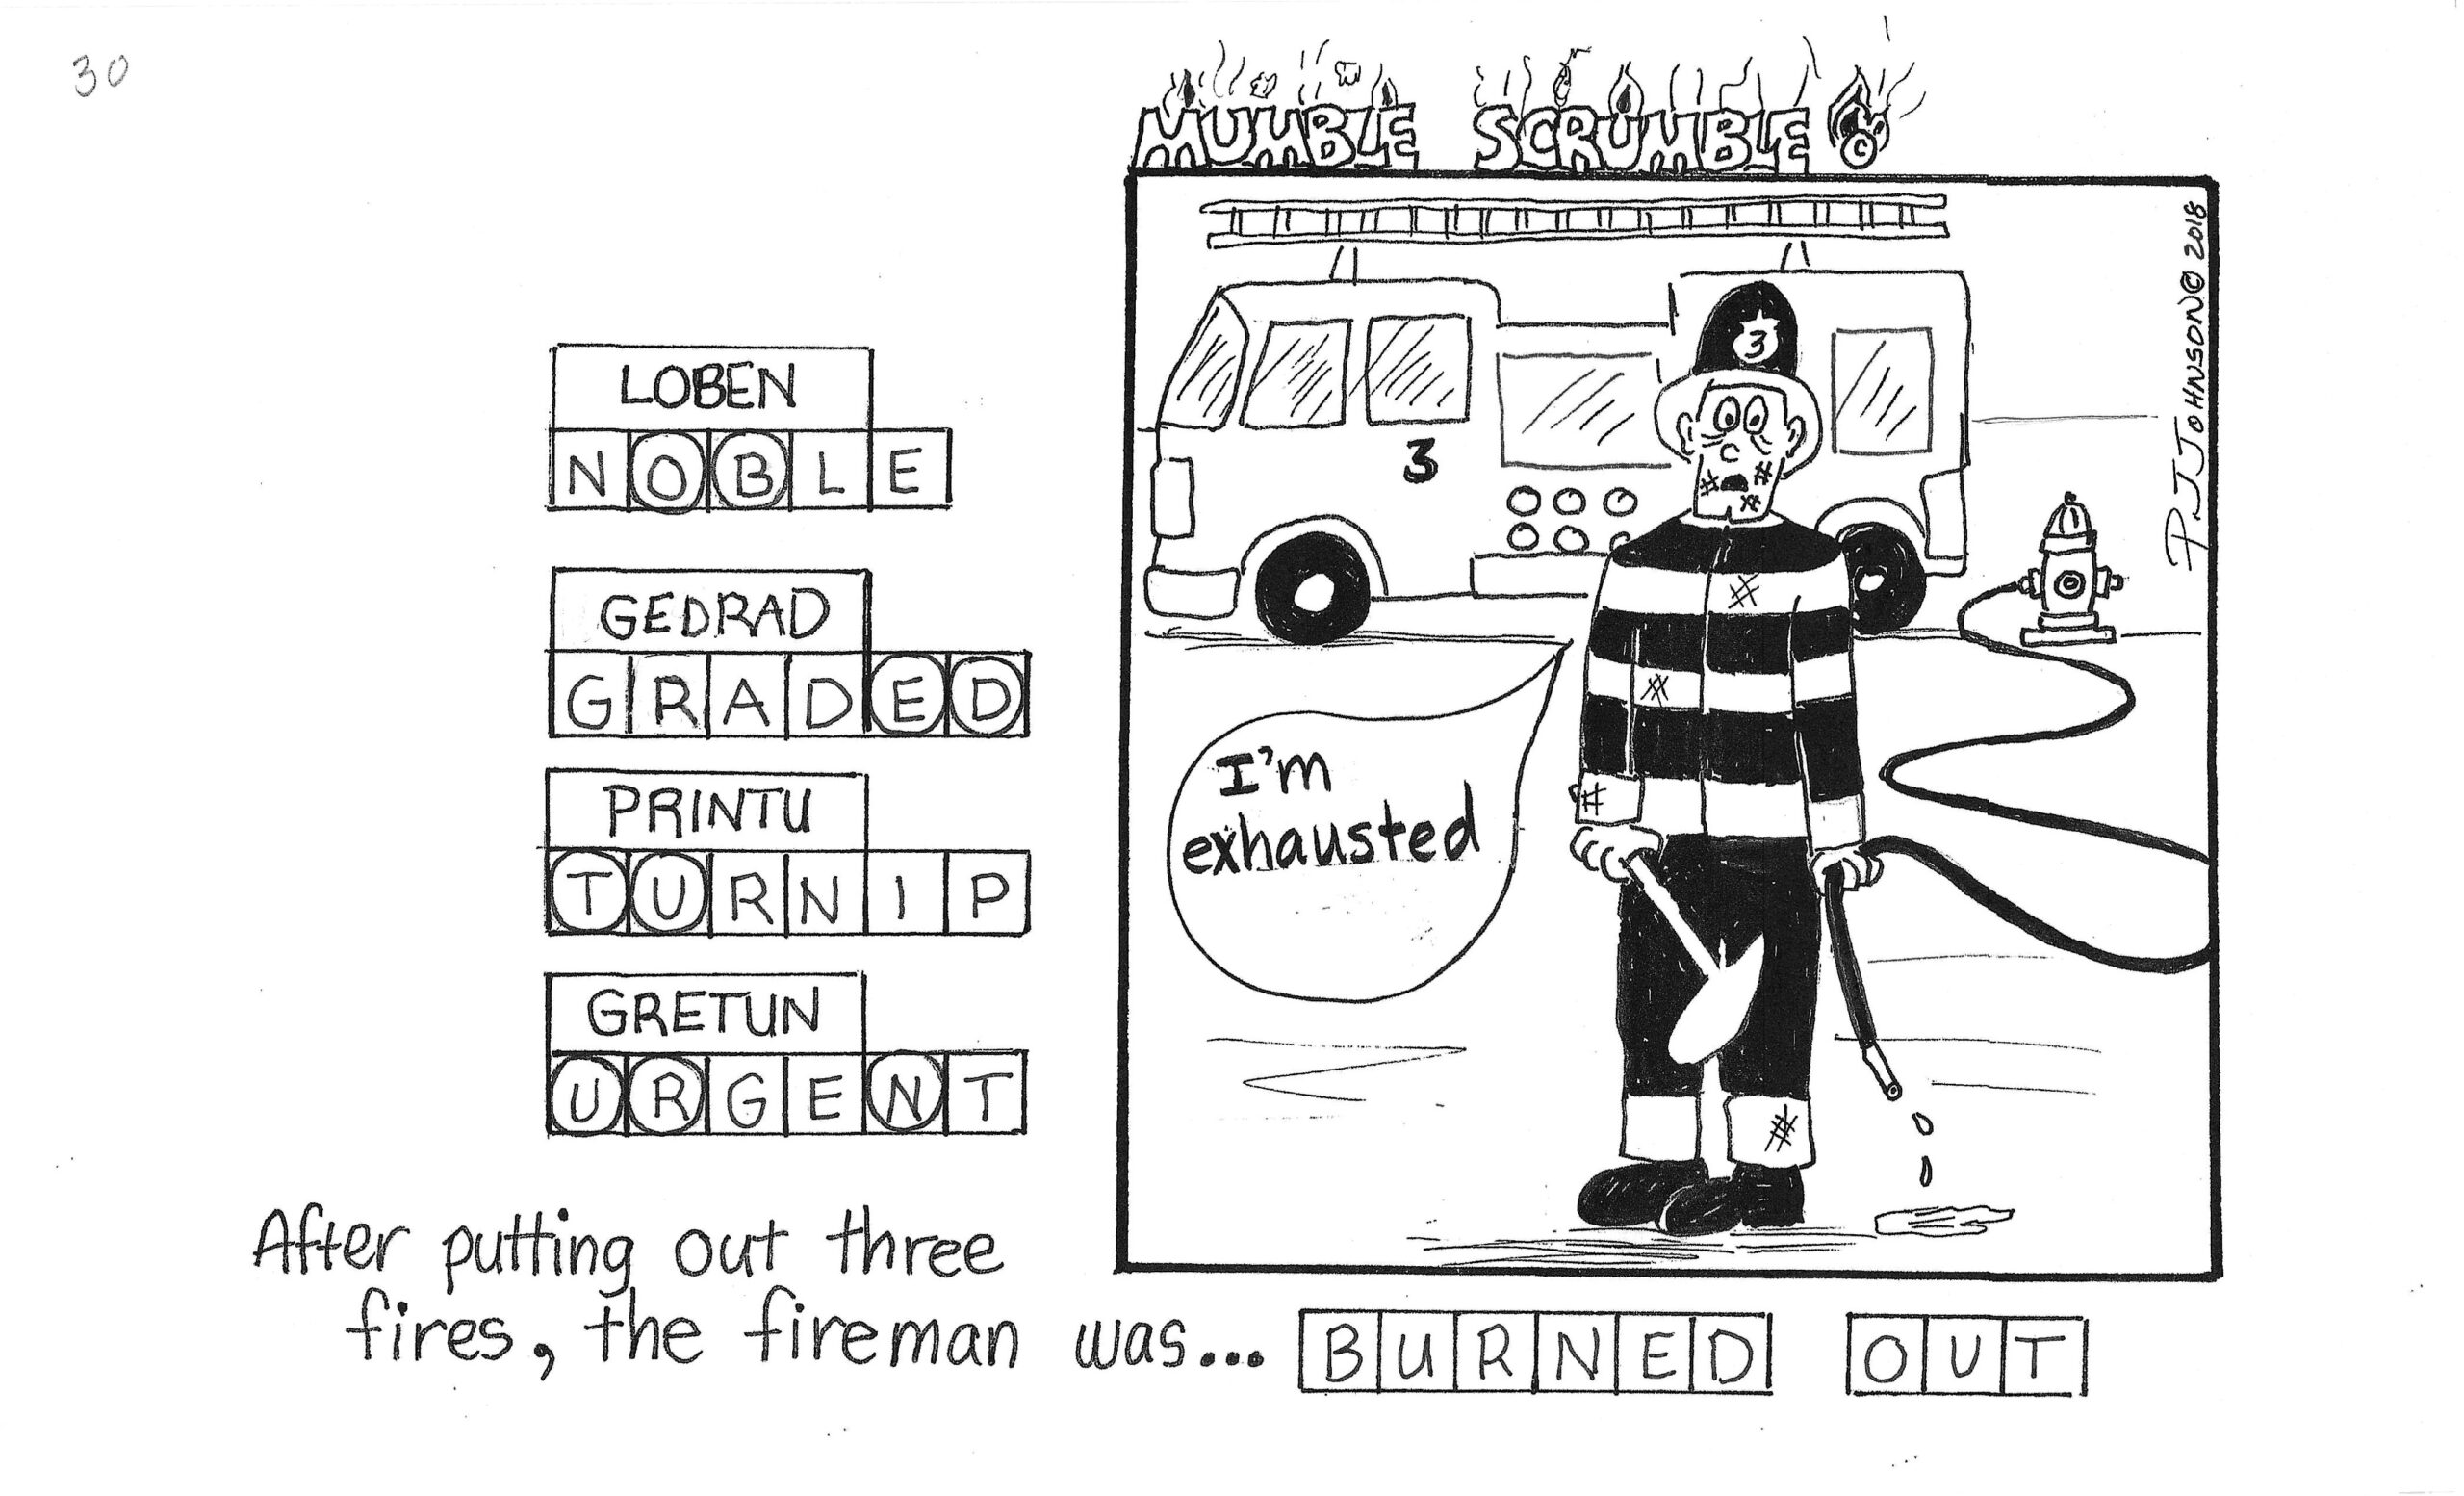 30
MUMBLE SCRUMBLE ©
LOBEN
NOBLE
GEDRAD
GRADED
PRINTU
TURNIP
GRETUN
URGENT
3
3
I'm
exhausted
P.J JOHNSON © 2018
After putting out three
fires, the fireman was... BURNED OUT